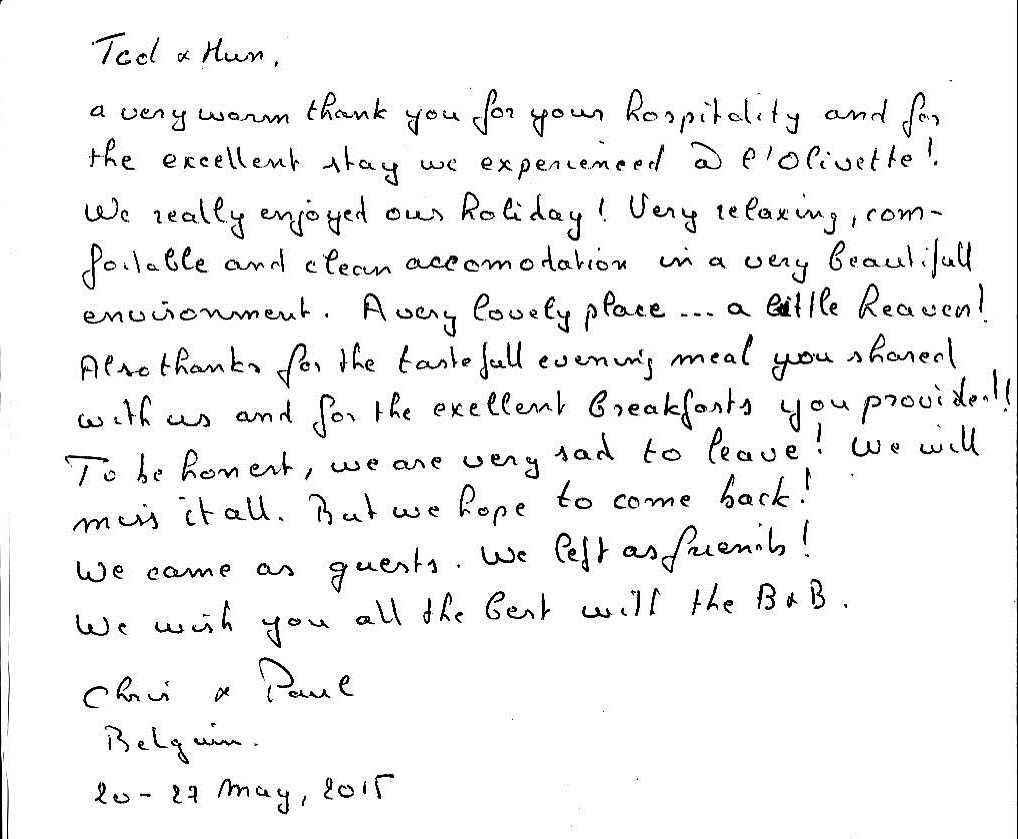 Ted & Hun,
a very warm thank you for your hospitality and for
the excellent stay we experienced à l'Olivette!
We really enjoyed our holiday! Very relaxing, com-
fortable and clean accomodation in a very beautifull
environment. A very lovely place ... a little heaven!
Also thanks for the tastefull evening meal you shared
with us and for the exellent breakfasts you provided!!
To be honest, we are very sad to leave! We will
miss it all. But we hope to come back!
We came as guests. We left as friends!
We wish you all the best with the B&B.
Chris & Paul
Belguim.
20 - 27 May, 2015